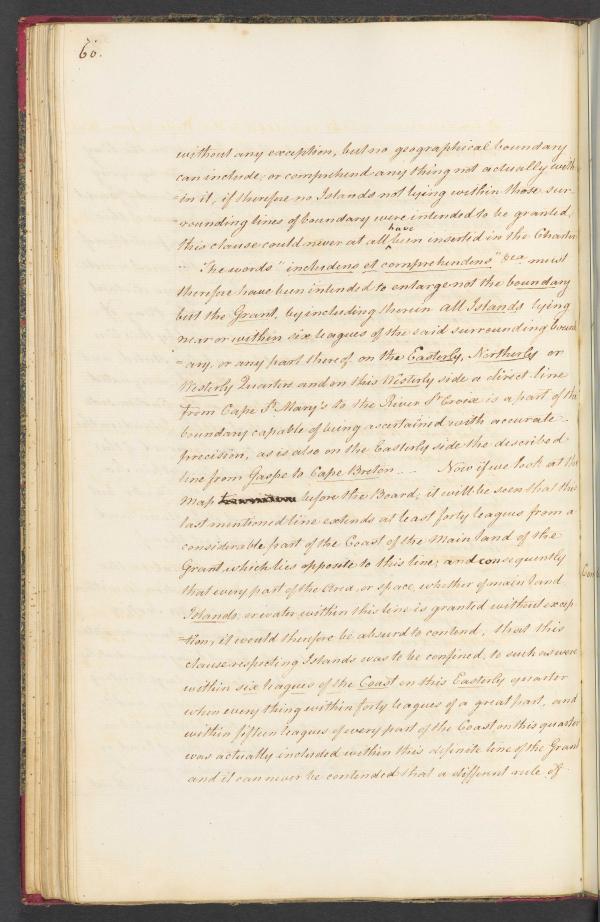 60.
without any exception, but no geographical boundary
can include, or comprehend any thing not actually with
=in it, if therefore no Islands not lying within those sur-
=rounding lines of boundary were intended to be granted,
have
this clause could never at all been inserted in the Charter
The words "includens et comprehendens" &ca must
therefore have been intended to enlarge not the boundary
but the Grant, by including therein all Islands lying
near or within six leagues of the said surrounding bound
=ary, or any part thereof on the Easterly, Northerly or
Westerly Quarters and on this Westerly side a direct line
from Cape St. Mary's to the River St Croix is a part of the
boundary capable of being ascertained with accurate
precision, as is also on the Easterly side the described
line from Gaspe to Cape Breton _ _ Now if we look at the
Map before the Board, it will be seen that this
last mentioned line extends at least forty leagues from a
considerable part of the Coast of the Main land of the
Grant which lies opposite to this line; and consequently
that every part of the Area, or space whether of main land
Islands, or water, within this line is granted without excep
=tion, it would therefore be absurd to contend, that this
clause respecting Islands was to be confined, to such as were
within six leagues of the Coast on this Easterly quarter
when every thing within forty leagues of a great part, and
within fifteen leagues of every part of the Coast on this quarter
was actually included within this definite line of the Grant
and it can never be contended that a different rule of